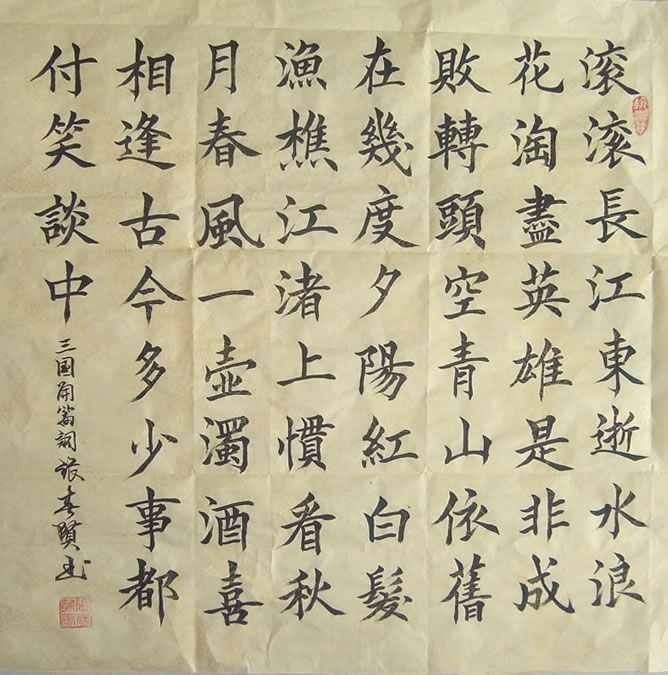 滚滚長江東逝水浪
花淘盡英雄是非成
敗轉頭空青山依舊
在幾度夕陽紅白髮
漁樵江渚上慣看秋
月春風一壺濁酒喜
相逢古今多少事都
付笑談中
三国開篇詞 張春賢书